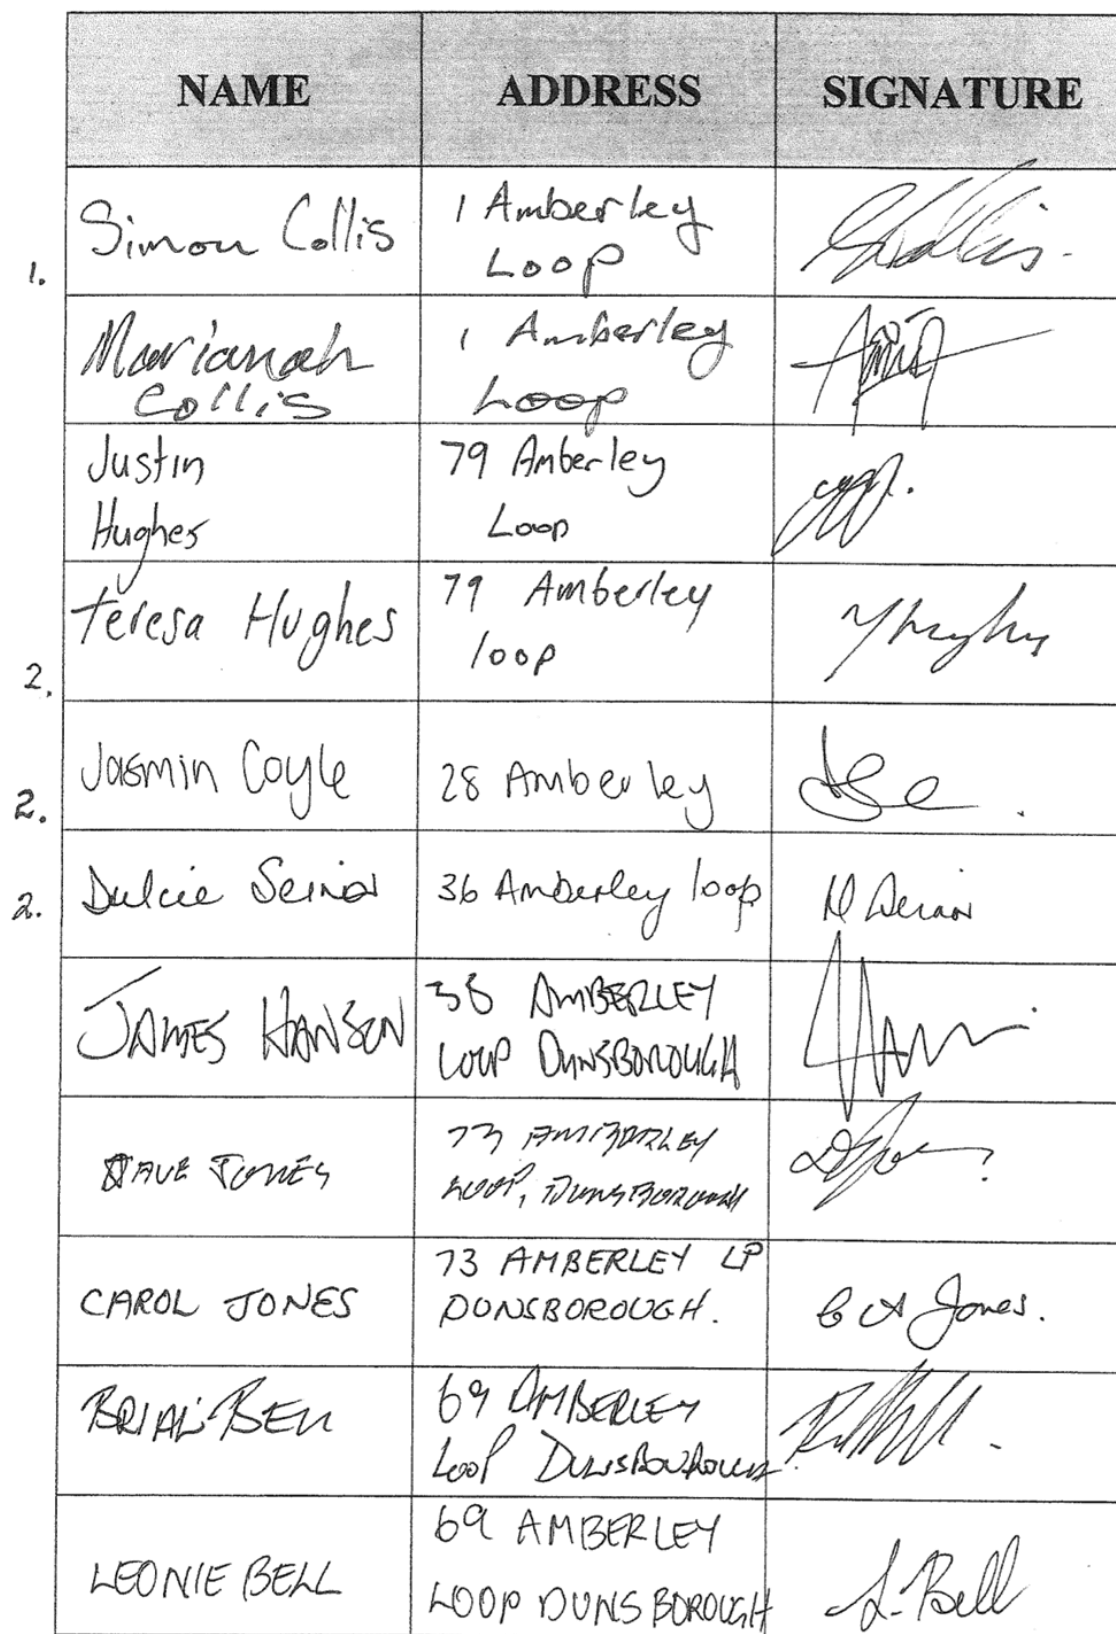 NAME ADDRESS SIGNATURE
Simon Collis 1 Amberley
Loop
1.
Marianah 1 Amberley
Collis Loop
Justin 79 Amberley
Hughes Loop
Teresa Hughes 79 Amberley
loop
2.
Jasmin Coyle 28 Amberley
2.
Dulcie Senior 36 Amberley loop
2.
JAMES HANSON 38 AMBERLEY
LOOP DUNSBOROUGH
DAVE JONES 73 AMBERLEY
LOOP, DUNSBOROUGH
CAROL JONES 73 AMBERLEY LP
DUNSBOROUGH. C A Jones.
BRIAN BELL 69 AMBERLEY
LOOP DUNSBOROUGH
LEONIE BELL 69 AMBERLEY
LOOP DUNSBOROUGH L. Bell